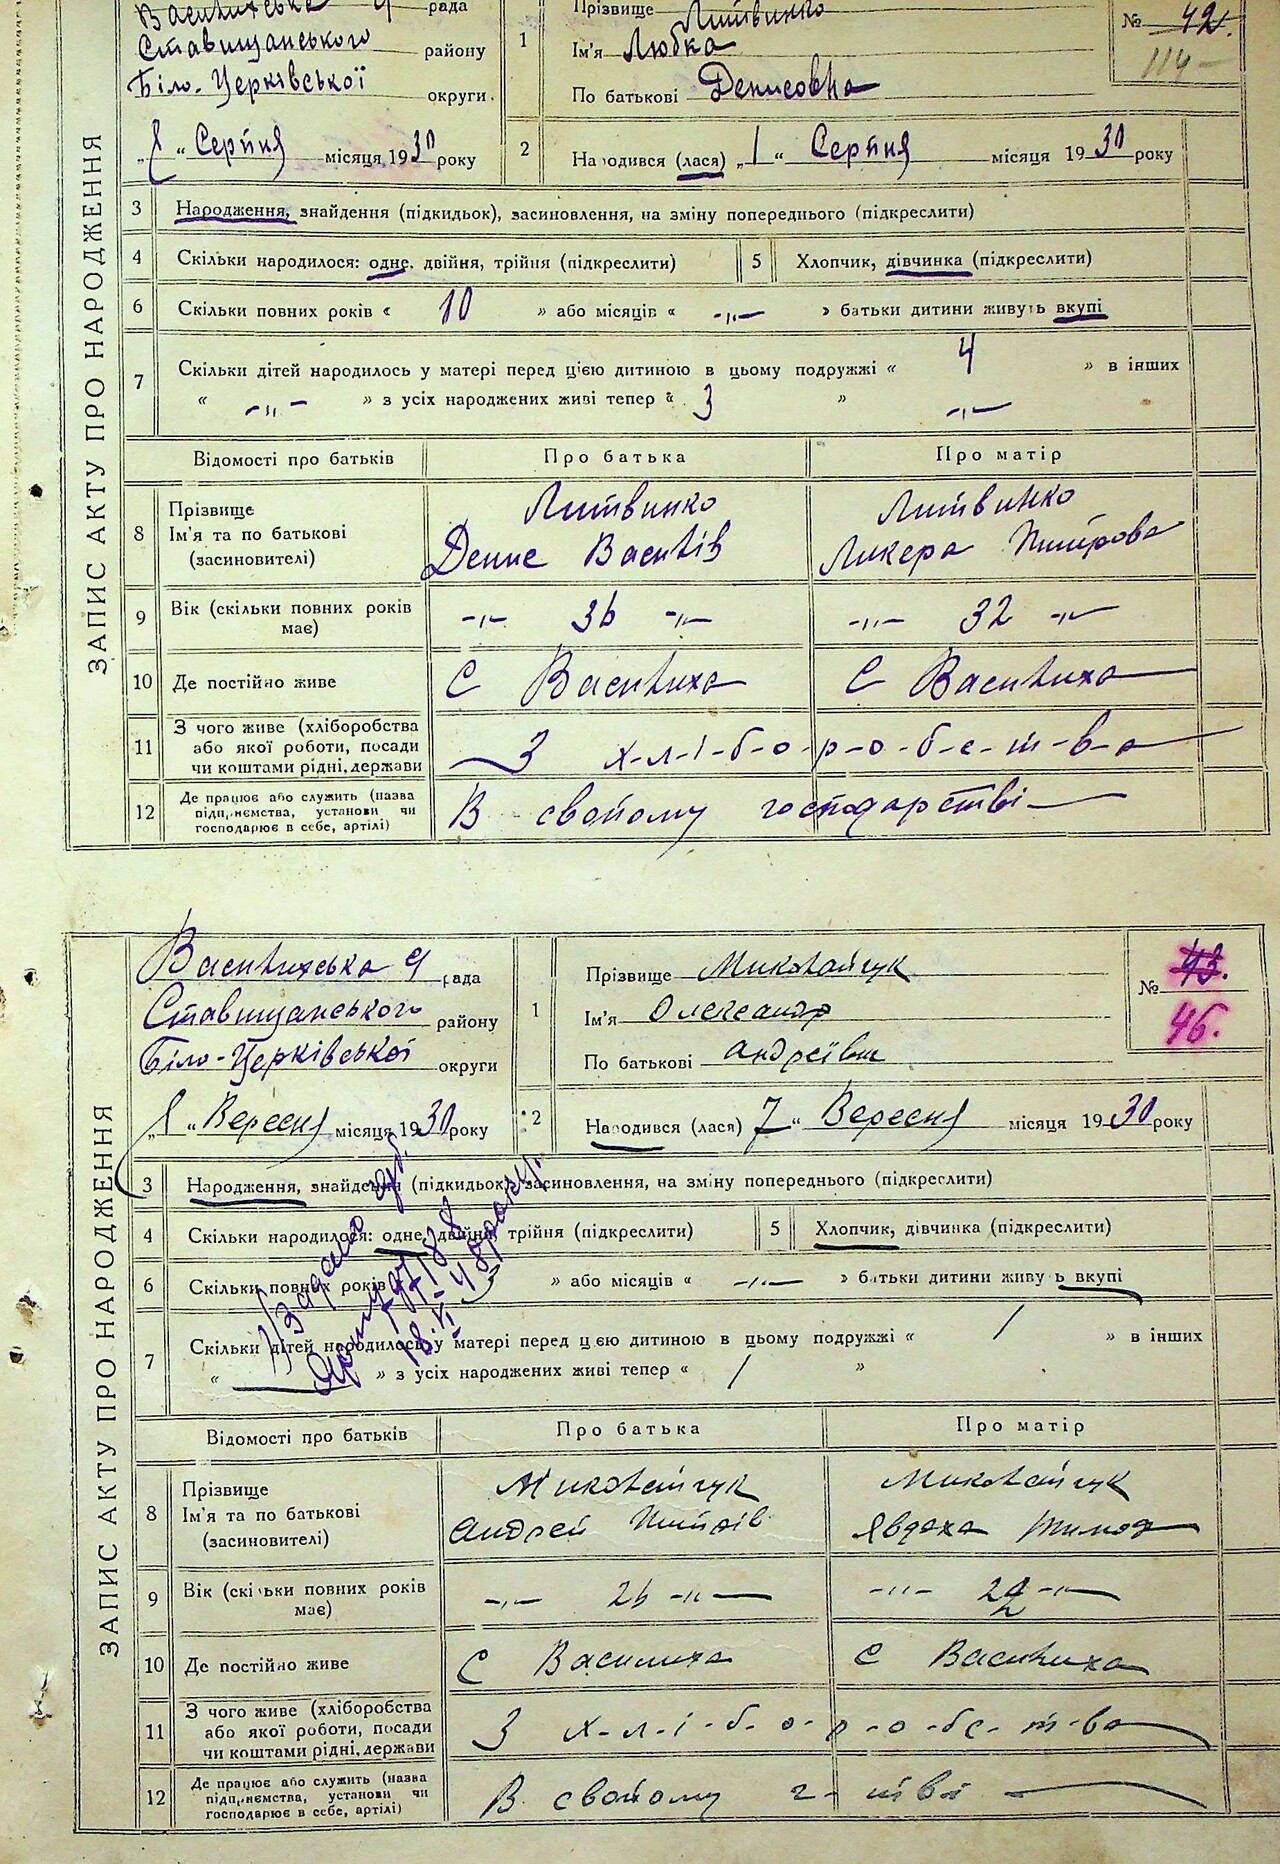 Василихська рада
Ставищанського району
Біло-Церківської округи.
„8“ Серпня місяця, 1930 року
1
Прізвище Литвинко
Ім'я Любка
По батькові Денисовна
№ 42.
114
2 Народився (лася) „1“ Серпня місяця 1930 року
ЗАПИС АКТУ ПРО НАРОДЖЕННЯ
3 Народження, знайдення (підкидьок), засиновлення, на зміну попереднього (підкреслити)
4 Скільки народилося: одне, двійня, трійня (підкреслити) 5 Хлопчик, дівчинка (підкреслити)
6 Скільки повних років « 10 » або місяців « -„- » батьки дитини живуть вкупі
7 Скільки дітей народилось у матері перед цією дитиною в цьому подружжі « 4 » в інших
« -„- » з усіх народжених живі тепер « 3 » -„-
Відомості про батьків Про батька Про матір
8 Прізвище Литвинко Литвинко
Ім'я та по батькові Денис Василів Ликера Питрова
(засиновителі)
9 Вік (скільки повних років має) -„- 36 -„- -„- 32 -„-
10 Де постійно живе С Василиха С Василиха
11 З чого живе (хліборобства
або якої роботи, посади З х-л-і-б-о-р-о-б-с-т-в-а
чи коштами рідні, держави
12 Де працює або служить (назва
підприємства, установи чи В свойому господарстві
господарює в себе, артілі)
Василихська рада
Ставищанського району
Біло-Церківської округи
„8“ Вересня місяця 1930 року
1
Прізвище Миколайчук
Ім'я Олександр
По батькові Андреівич
№ 43.
46.
2 Народився (лася) 7“ Вересня місяця 1930 року
ЗАПИС АКТУ ПРО НАРОДЖЕННЯ
3 Народження, знайдення (підкидьок), засиновлення, на зміну попереднього (підкреслити)
4 Скільки народилося: одне, двійня, трійня (підкреслити) 5 Хлопчик, дівчинка (підкреслити)
6 Скільки повних років « 3 » або місяців « -„- » батьки дитини живуть вкупі
7 Скільки дітей народилось у матері перед цією дитиною в цьому подружжі « 1 » в інших
« » з усіх народжених живі тепер « 1 »
18.VI-48 року.
Відомості про батьків Про батька Про матір
8 Прізвище Миколайчук Миколайчук
Ім'я та по батькові Андрей Питрів Явдоха Тимоф
(засиновителі)
9 Вік (скільки повних років має) -„- 26 -„- -„- 22 -„-
10 Де постійно живе С Василиха С Василиха
11 З чого живе (хліборобства
або якої роботи, посади З х-л-і-б-о-р-о-бс-т-ва
чи коштами рідні, держави
12 Де працює або служить (назва
підприємства, установи чи В свойому г-тві
господарює в себе, артілі)